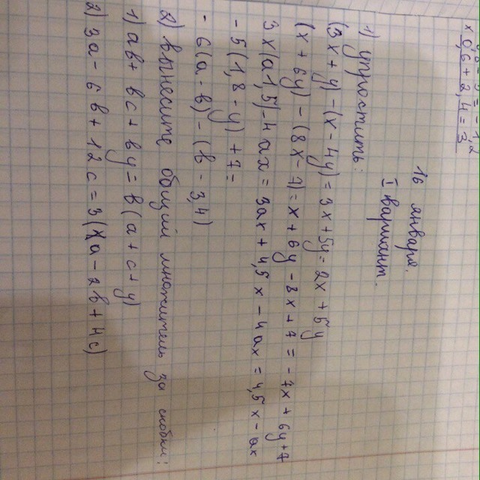 16 января.
I вариант.
1) упростить:
(3x + y) - (x - 4y) = 3x + 5y = 2x + 5y
(x + 6y) - (8x - 7) = x + 6y - 8x + 7 = -7x + 6y + 7
3x(a 1,5) - 4ax = 3ax + 4,5x - 4ax = 4,5x - ax
- 5(1,8 - y) + 7 =
- 6(a - в) - (в - 3,4)
2) вынесите общий множитель за скобки:
1) aв + вc + вy = в(a + c + y)
2) 3a - 6в + 12c = 3(a - 2в + 4c)